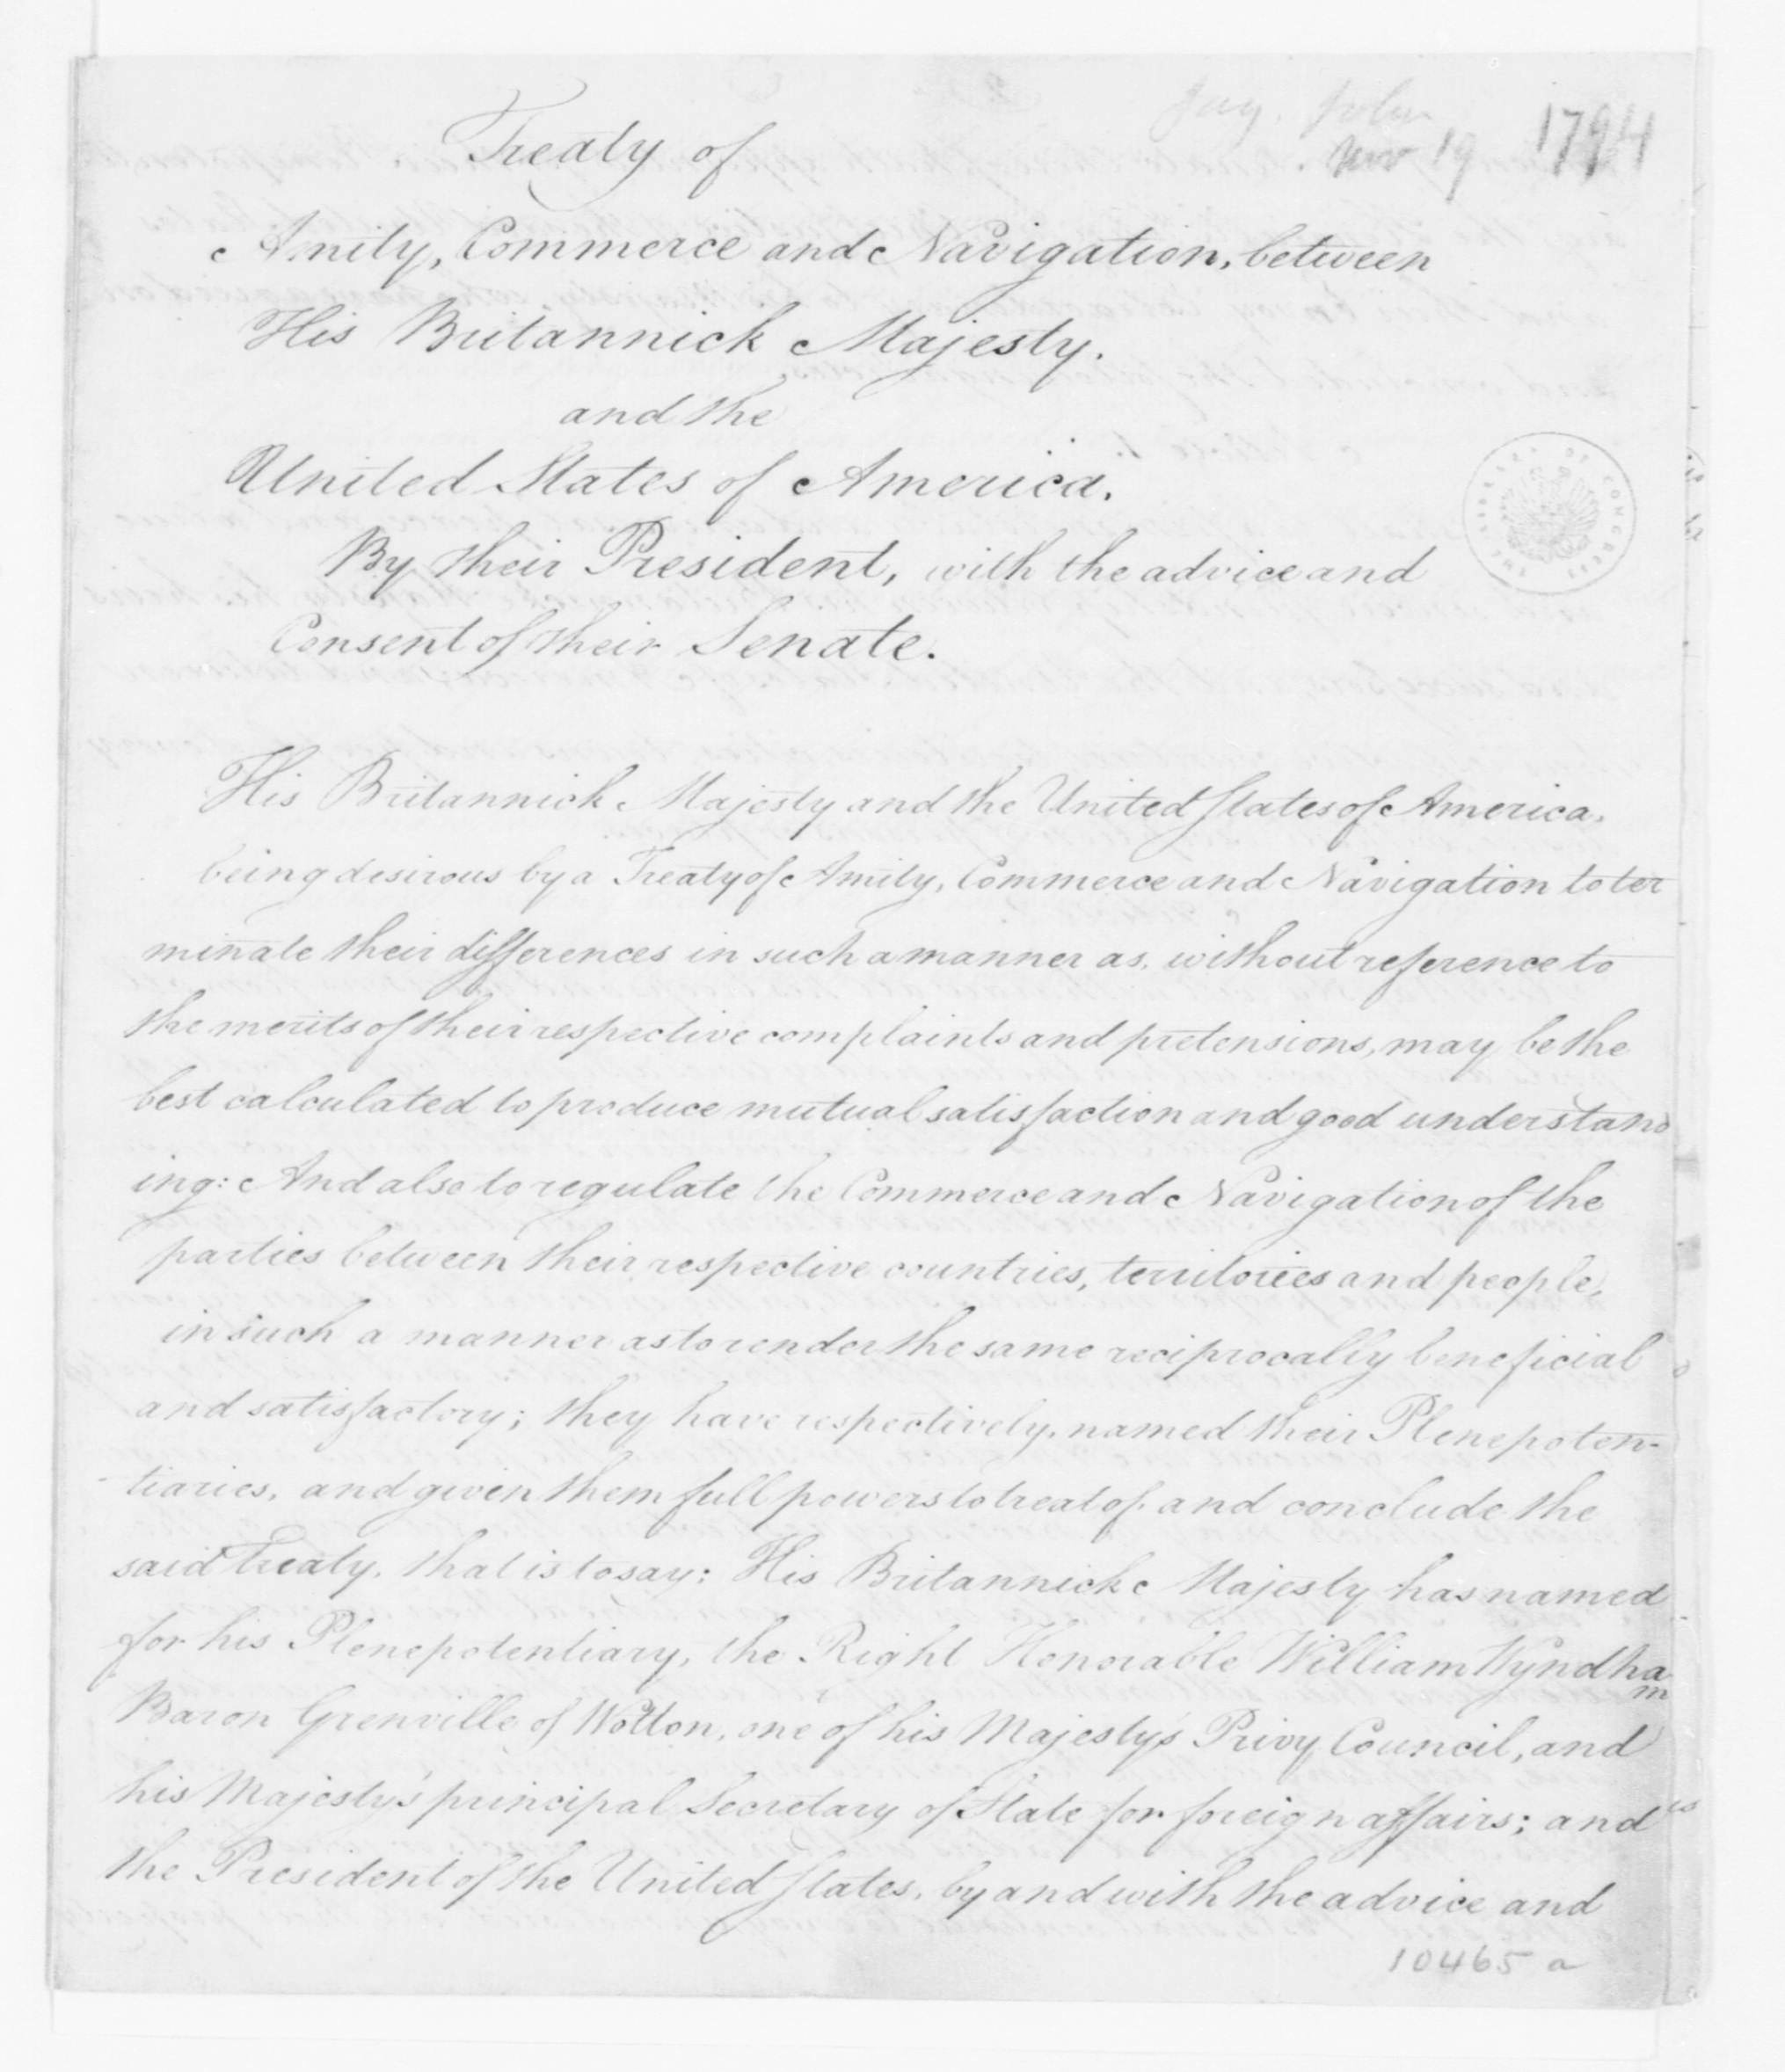 Jay, John
Nov 19 1794
Treaty of
Amity, Commerce and Navigation, between
His Britannick Majesty.
and the
United States of America.
By their President, with the advice and
Consent of their Senate.
THE LIBRARY OF CONGRESS
His Britannick Majesty and the United States of America,
being desirous by a Treaty of Amity, Commerce and Navigation to ter
minate their differences in such a manner as, without reference to
the merits of their respective complaints and pretensions, may be the
best calculated to produce mutual satisfaction and good understand
ing: And also to regulate the Commerce and Navigation of the
parties between their respective countries, territories and people,
in such a manner as to render the same reciprocally beneficial
and satisfactory; they have respectively, named their Plenepoten-
tiaries, and given them full powers to treat of and conclude the
said Treaty. that is to say: His Britannick Majesty has named
for his Plenepotentiary, the Right Honorable William Wyndham
Baron Grenville of Wotton, one of his Majesty's Privy Council, and
his Majesty's principal Secretary of State for foreign affairs; and
the President of the United States, by and with the advice and
10465 a